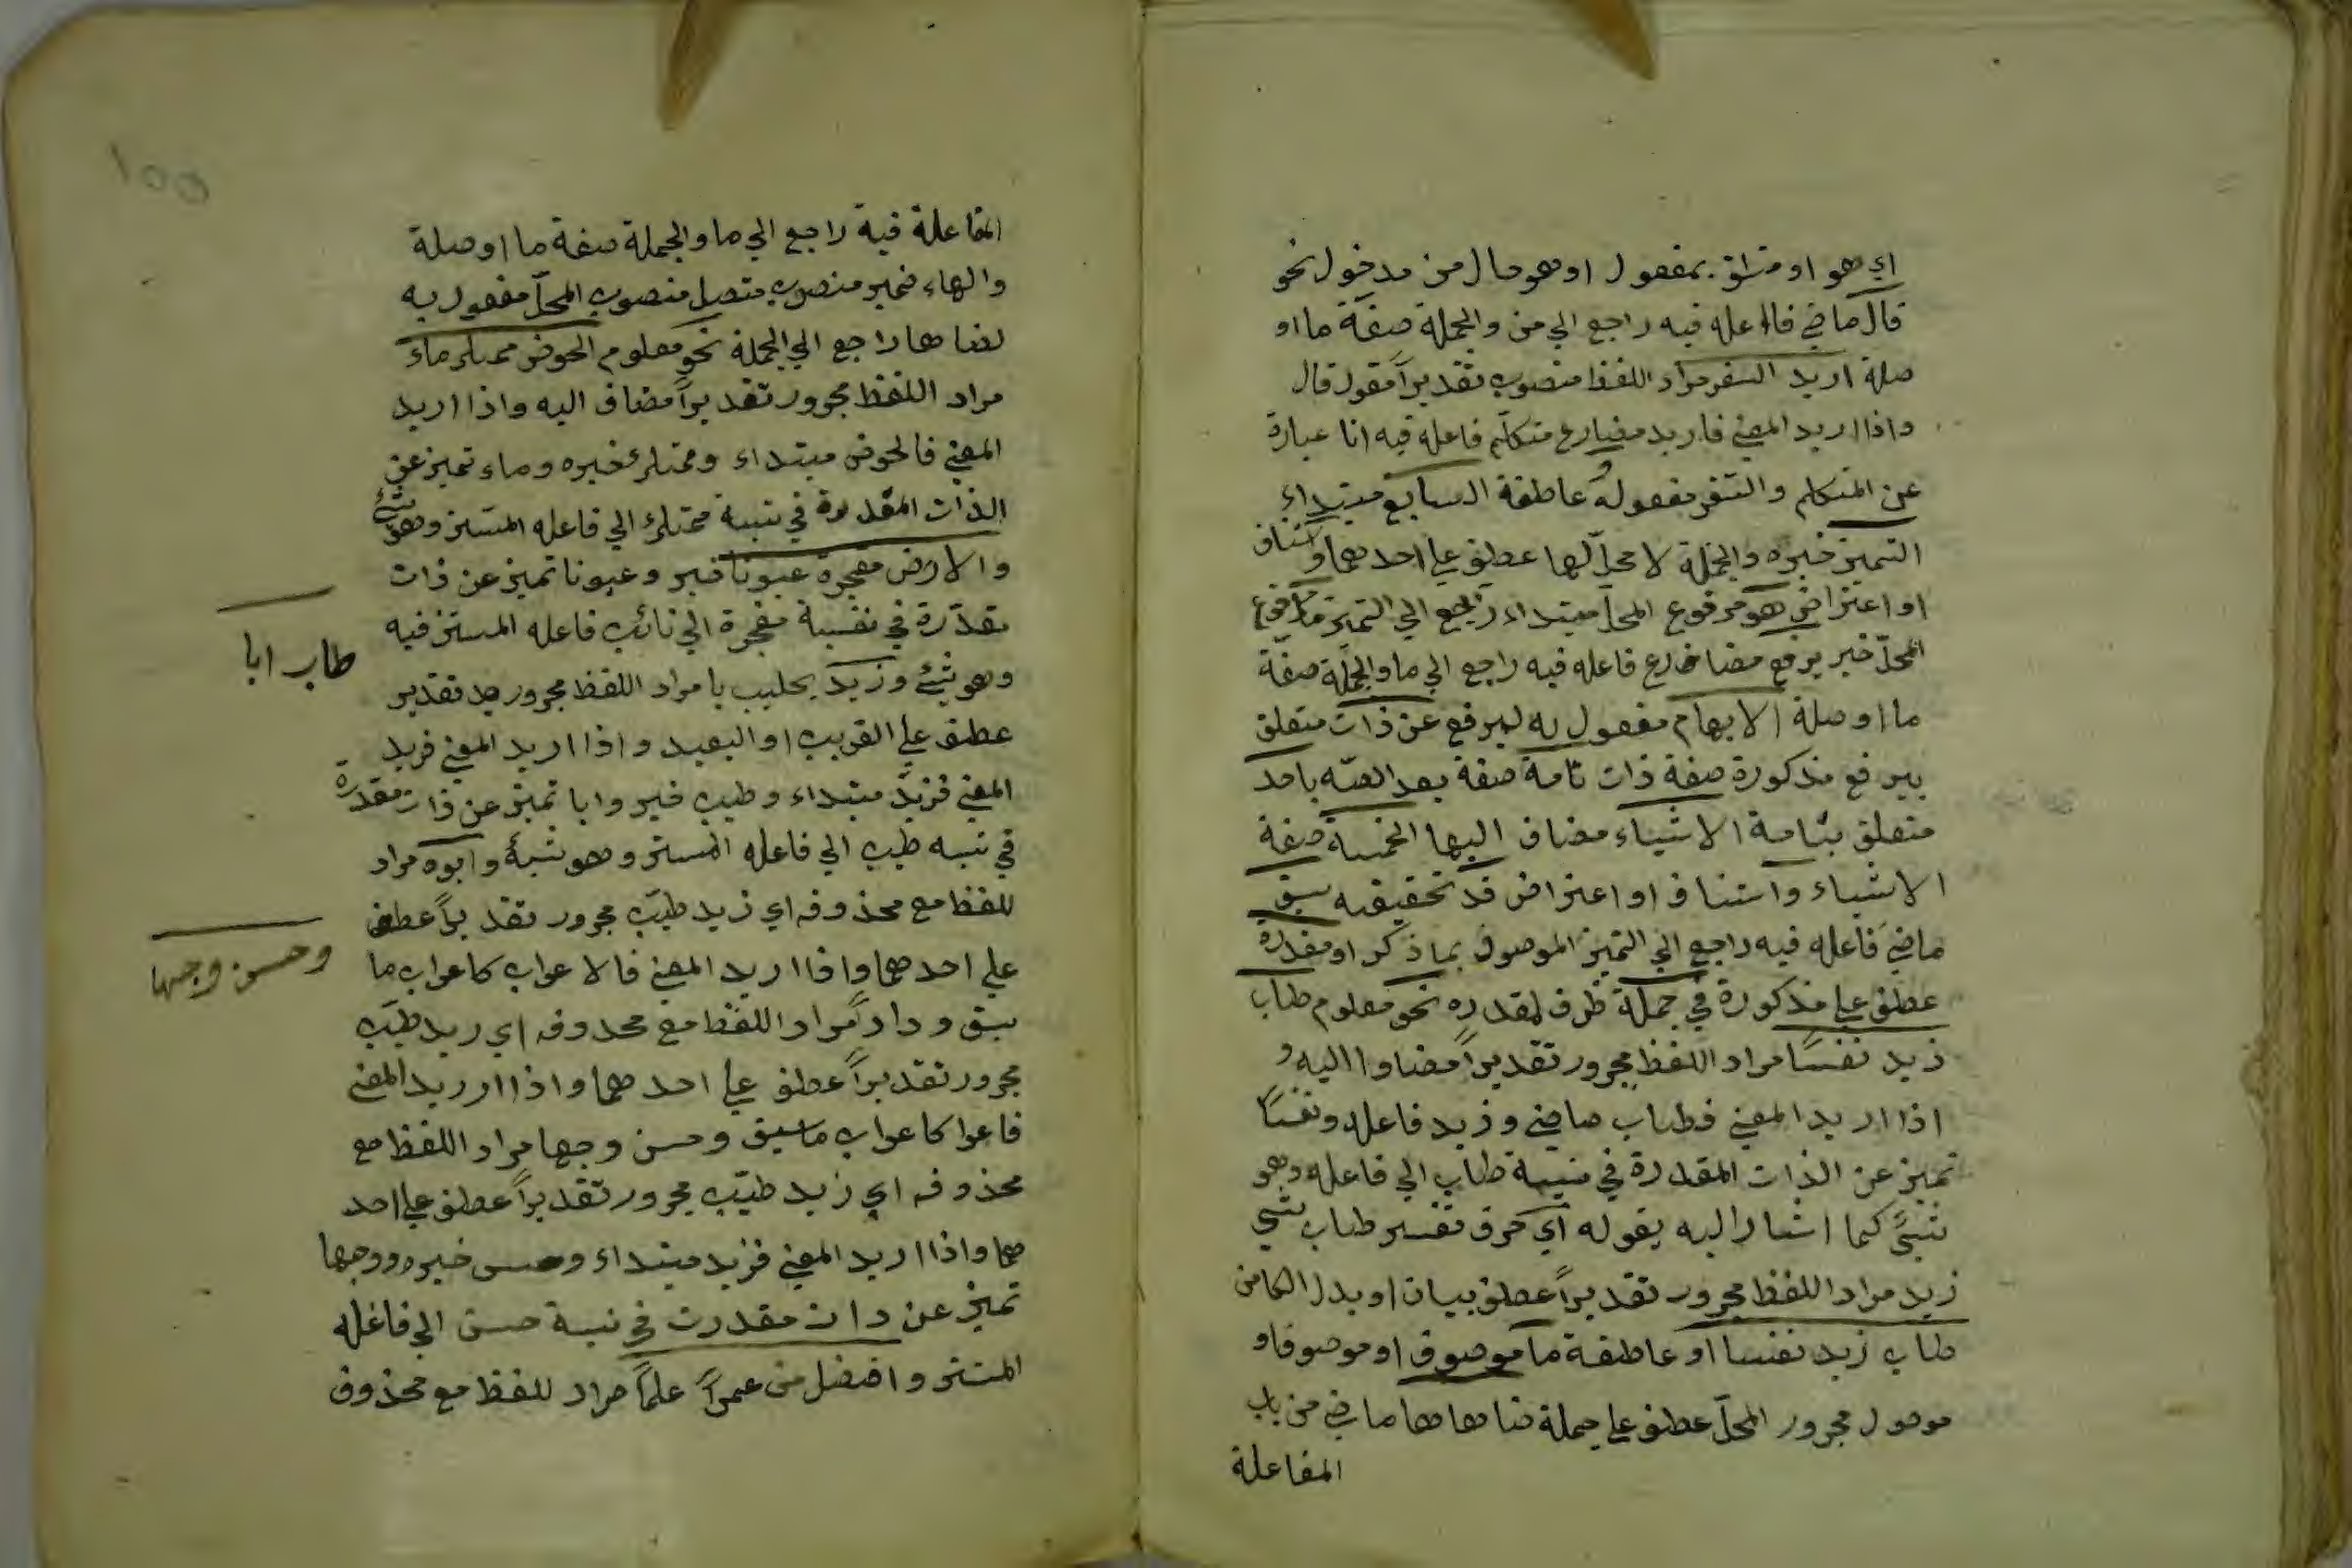 اي هو او متعلق بمفعول او هو حال من مدخول نحو
قال ماضي فاعله فيه راجع الي من والجملة صفة ما او
صلة اريد السفر مراد اللفظ منصوب تقديراً مقول قال
واذا اريد المعني فاريد مضارع متكلم فاعله فيه انا عبارة
عن المتكلم والسفر مفعوله و عاطفة السابع مبتداء
التميز خبره والجملة لا محل لها عطف علي احدهما او استئناف
او اعتراض هو مرفوع المحل مبتداء راجع الي التميز ما مرفوع
المحل خبر يرفع مضارع فاعله فيه راجع الي ما والجملة صفة
ما او صلة الابهام مفعول به ليرفع عن ذات متعلق
بيرفع مذكورة صفة ذات تامة صفة بعد الصفة باحد
متعلق بتامة الاشياء مضاف اليها الخمسة صفة
الاشياء واستئناف او اعتراض قد تحقيقيه سبق
ماضي فاعله فيه راجع الي التميز الموصوف بما ذكر او مقدرة
عطف علي مذكورة في جملة ظرف لمقدره نحو معلوم طاب
زيد نفساً مراد اللفظ مجرور تقديراً مضاوا اليه و
اذا اريد المعني فطاب ماضي وزيد فاعله ونفساً
تميز عن الذات المقدرة في نسبة طاب الي فاعله وهو
شيئ كما اشار اليه بقوله اي حرف تفسير طاب شيئ
زيد مراد اللفظ مجرور تقديراً عطف بيان او بدل الكل من
طاب زيد نفسا او عاطفة ما موصوف او موصوفا و
موصول مجرور المحل عطف علي جملة ضاهاها ماضي من باب
المفاعلة
المفاعلة فيه راجع الي ما والجملة صفة ما او صلة
والهاء ضمير منصوب متصل منصوب المحل مفعول به
لضاها راجع الي الجملة نحو معلوم الحوض ممتلئ ماء
مراد اللفظ مجرور تقديراً مضاف اليه واذا اريد
المعني فالحوض مبتداء وممتلئ خبره وماء تميز عن
الذات المقدرة في نسبة ممتلئ الي فاعله المستتر وهو شيئ
والارض مفجرة عيونا خبر وعيونا تميز عن ذات
مقدرة في نفسبة مفجرة الي نائب فاعله المستتر فيه
وهو شيئ وزيد طيب ابا مراد اللفظ مجرور تقدير
عطف علي القريب او البعيد واذا اريد المعني فزيد
المعني فزيد مبتداء وطيب خبر وابا تميز عن ذات مقدرة
في نسبه طيب الي فاعله المستتر وهو شيئ وابوه مراد
للفظ مع محذوفه اي زيد طيب مجرور تقديراً عطف
علي احدهما واذا اريد المعني فالاعراب كاعراب ما
سبق وداراً مراد اللفظ مع محذوفه اي زيد طيب
مجرور تقديراً عطف علي احدهما واذا اريد المعني
فاعرا كاعراب ما سبق وحسن وجها مراد اللفظ مع
محذوفه اي زيد طيب مجرور تقديراً عطف علي احد
هما واذا اريد المعني فزيد مبتداء وحسن خبره ووجها
تميز عن ذات مقدرت في نسبة حسن الي فاعله
المستتر وافضل من عمراً علماً مراد للفظ مع محذوف
طاب ابا
وحسن وجها
١٥٥